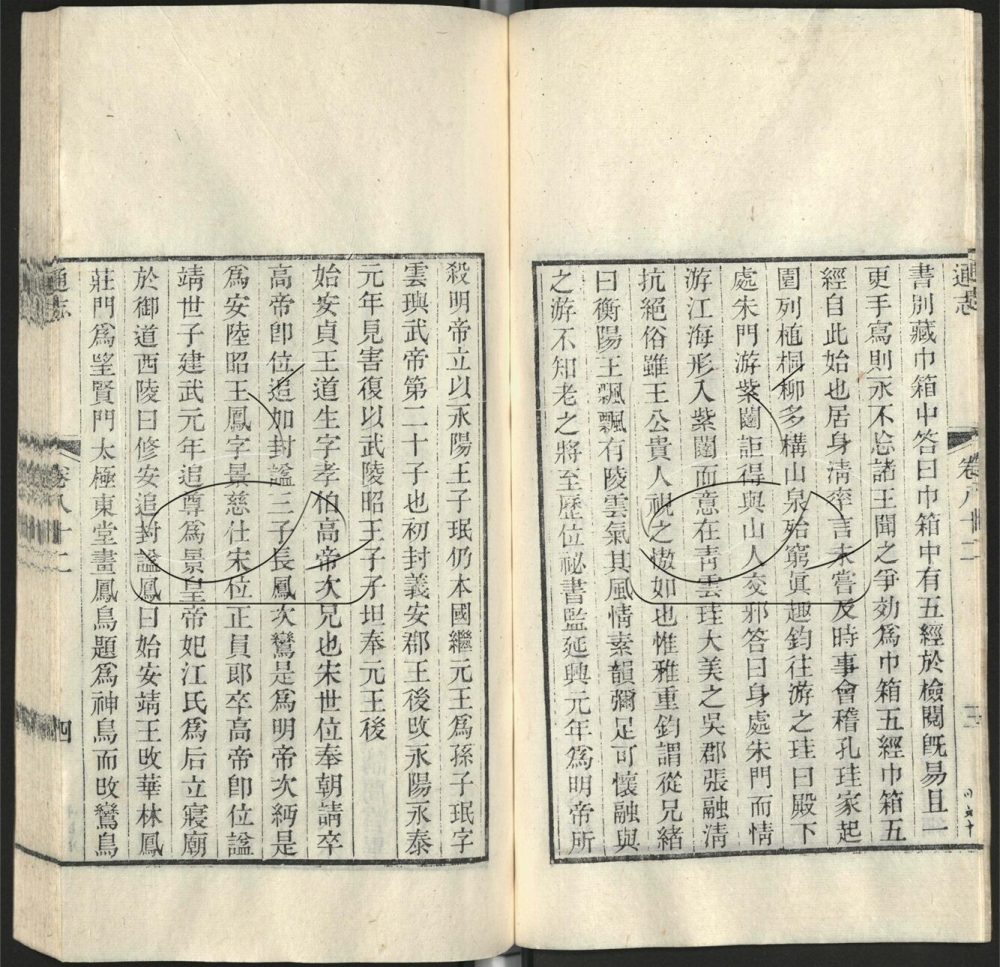 書別藏巾箱中答曰巾箱中有五經於檢閱旣易且一
更手寫則永不忘諸王聞之爭効爲巾箱五經巾箱五
經自此始也居身淸率言未嘗及時事會稽孔珪家起
園列植桐柳多構山泉殆窮眞趣鈞往游之珪曰殿下
處朱門游紫闥詎得與山人交邪答曰身處朱門而情
游江海形入紫闥而意在靑雲珪大美之吳郡張融淸
抗絕俗雖王公貴人視之傲如也惟雅重鈞謂從兄緒
曰衡陽王飄飄有陵雲氣其風情素韻彌足可懷融與
之游不知老之將至歷位祕書監延興元年爲明帝所
殺明帝立以永陽王子珉仍本國繼元王爲孫子珉字
雲璵武帝第二十子也初封義安郡王後改永陽永泰
元年見害復以武陵昭王子子坦奉元王後
始安貞王道生字孝伯高帝次兄也宋世位奉朝請卒
高帝卽位追加封諡三子長鳳次鸞是爲明帝次緬是
爲安陸昭王鳳字景慈仕宋位正員郞卒高帝卽位諡
靖世子建武元年追尊爲景皇帝妃江氏爲后立寢廟
於御道西陵曰修安追封諡鳳曰始安靖王改華林鳳
莊門爲望賢門太極東堂畫鳳鳥題爲神鳥而改鸞鳥
通志
卷八十二
四